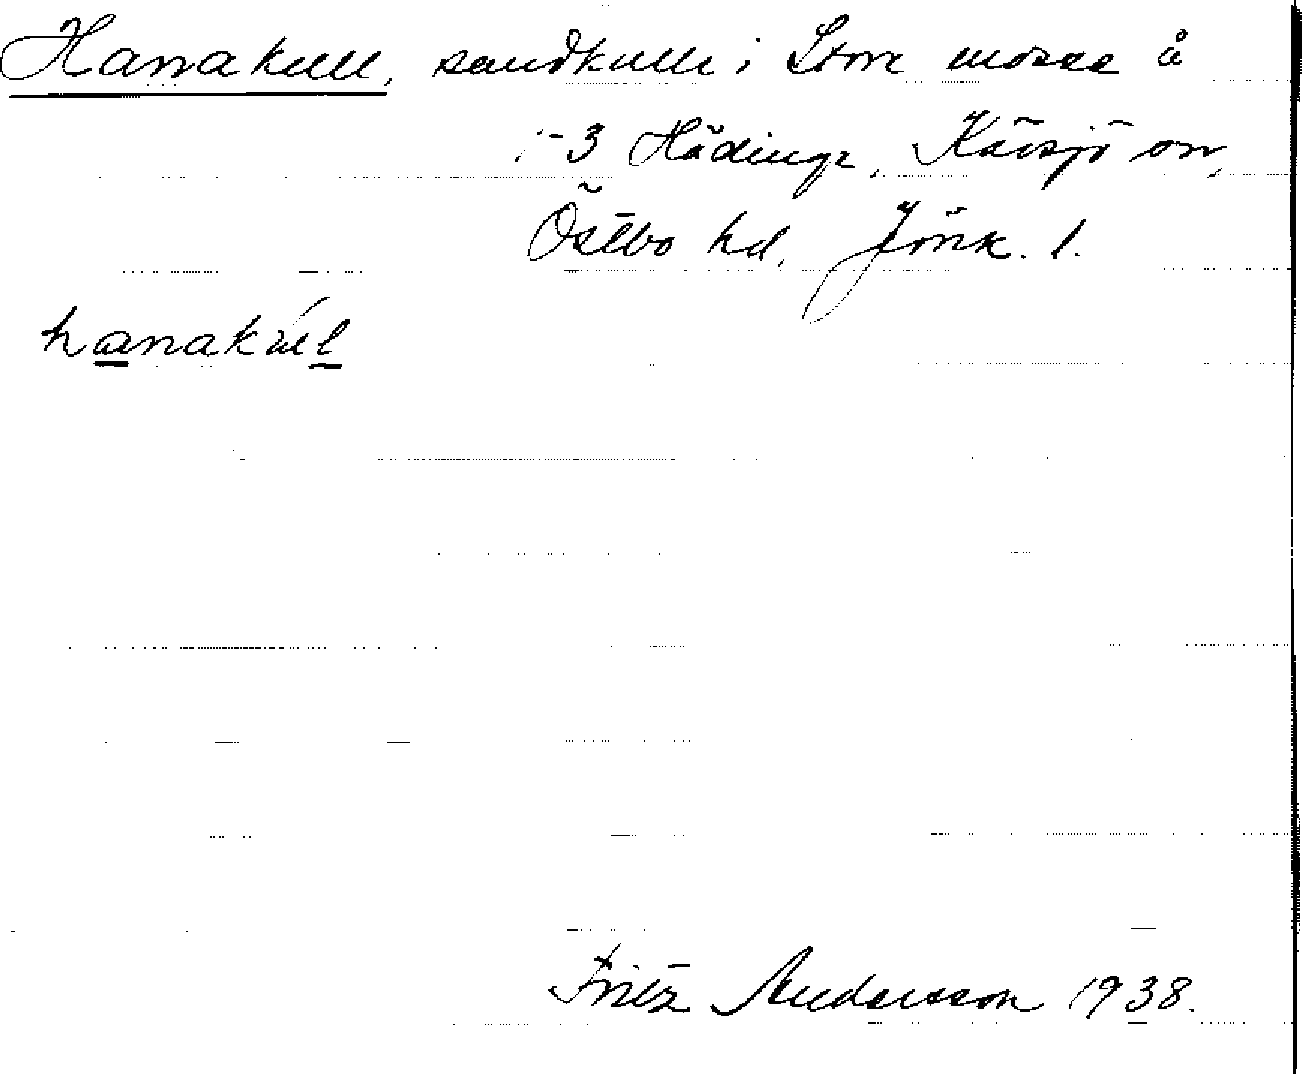 Hanakull, sandkulle i Store mosse å
1-3 Hädinge, Kävsjö sn,
Östbo hd, Jönk. l.
hanakùl
Fritz Andersson 1938.